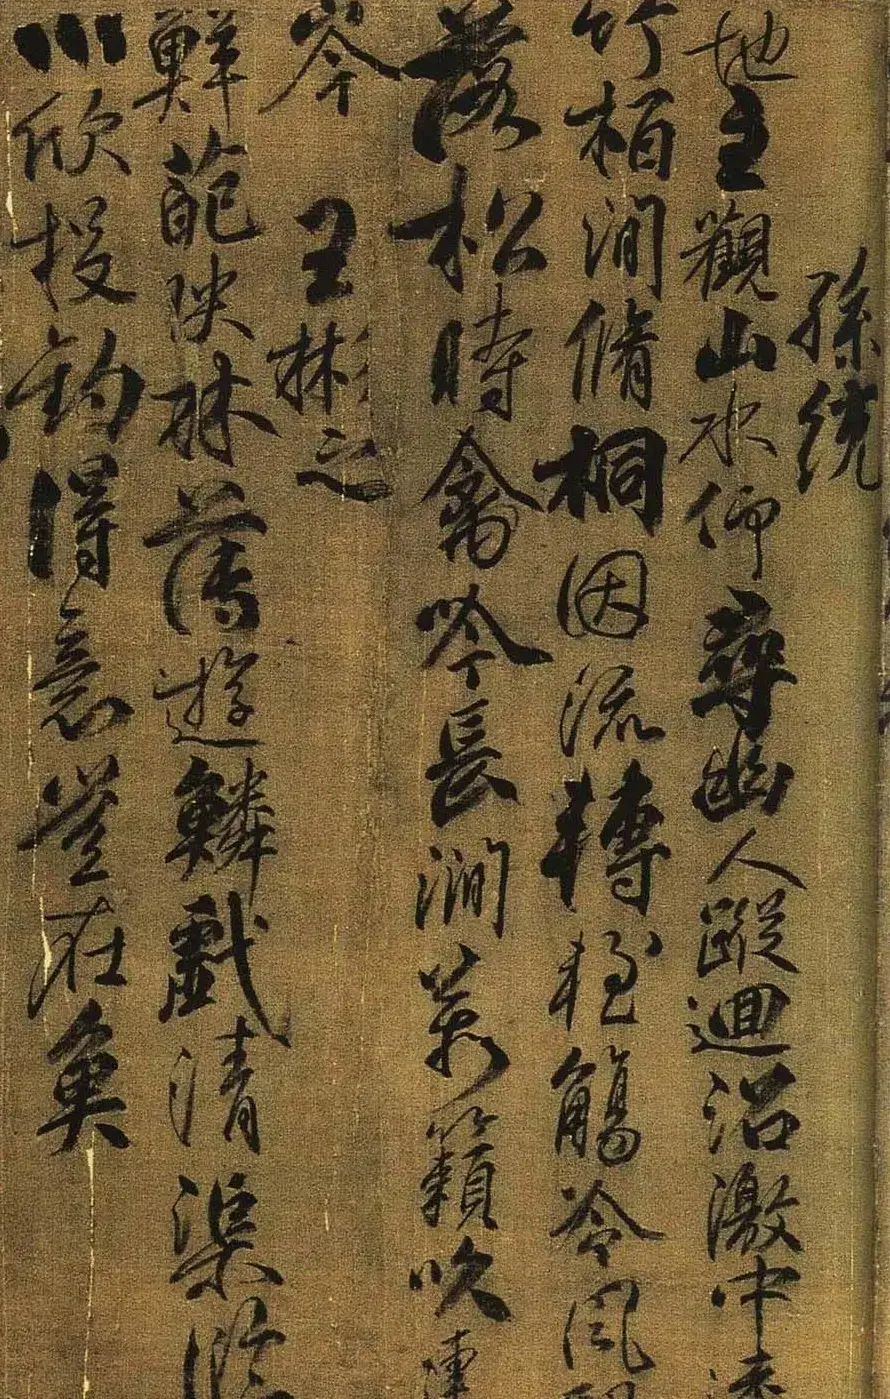 孫統
地主觀山水仰尋幽人蹤迴沼激中
竹栢澗脩桐因流轉輕觴冷風
落松時禽吟長澗萬籟吹連
岑
王彬之
鮮葩映林薄遊鱗戲清渠臨
川欣投釣得意豈在魚